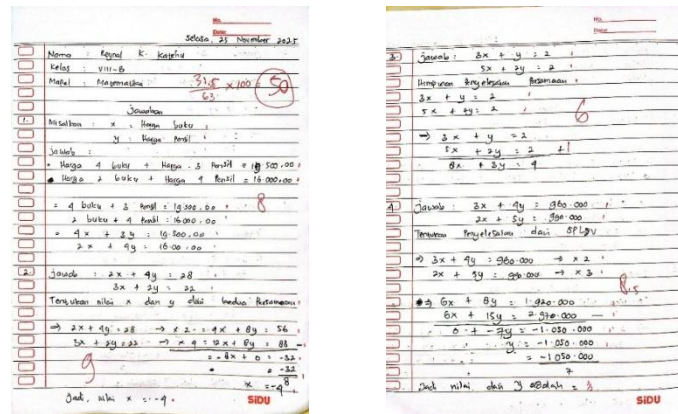 No.
Date:
Selasa, 25 November 2025
Nama : K.
Kelas : VIII-B
Mapel : Matematika
31,5 / 63 × 100 = 50
Jawaban
1. Misalkan : x = Harga buku
y : Harga Pensil
Jawab :
• Harga 4 buku + Harga 3 Pensil = 19.500,00
• Harga 2 buku + Harga 4 Pensil = 16.000,00
= 4 buku + 3 Pensil = 19.500,00
2 buku + 4 Pensil = 16.000,00
8
= 4x + 3y = 19.500,00
2x + 4y = 16.00,00
2. Jawab : 2x + 4y = 28
3x + 2y = 22
Tentukan nilai x dan y dari kedua Persamaan
⇒ 2x + 4y = 28 → x 2 = 4x + 8y = 56
3x + 2y = 22 → x 4 = 12x + 8y = 88 -
= -8x + 0 = -32
= -32
8
x = -4
9
Jadi, nilai x = -4.
SiDU
No.
Date:
3. Jawab : 3x + y = 2
5x + 2y = 2
Himpunan Penyelesaian Persamaan
3x + y = 2
5x + 2y = 2
6
⇒ 3x + y = 2
5x + 2y = 2 +
8x + 3y = 4
4. Jawab : 3x + 4y = 960.000
2x + 5y = 990.000
Tentukan Penyelesaian dari SPLDV
⇒ 3x + 4y = 960.000 → x 2
2x + 5y = 990.000 → x 3
8,5
⇒ 6x + 8y = 1.920.000
6x + 15y = 2.970.000 -
0 + -7y = -1.050.000
y = -1.050.000
= -1.050.000
7
Jadi nilai dari y adalah =
SiDU